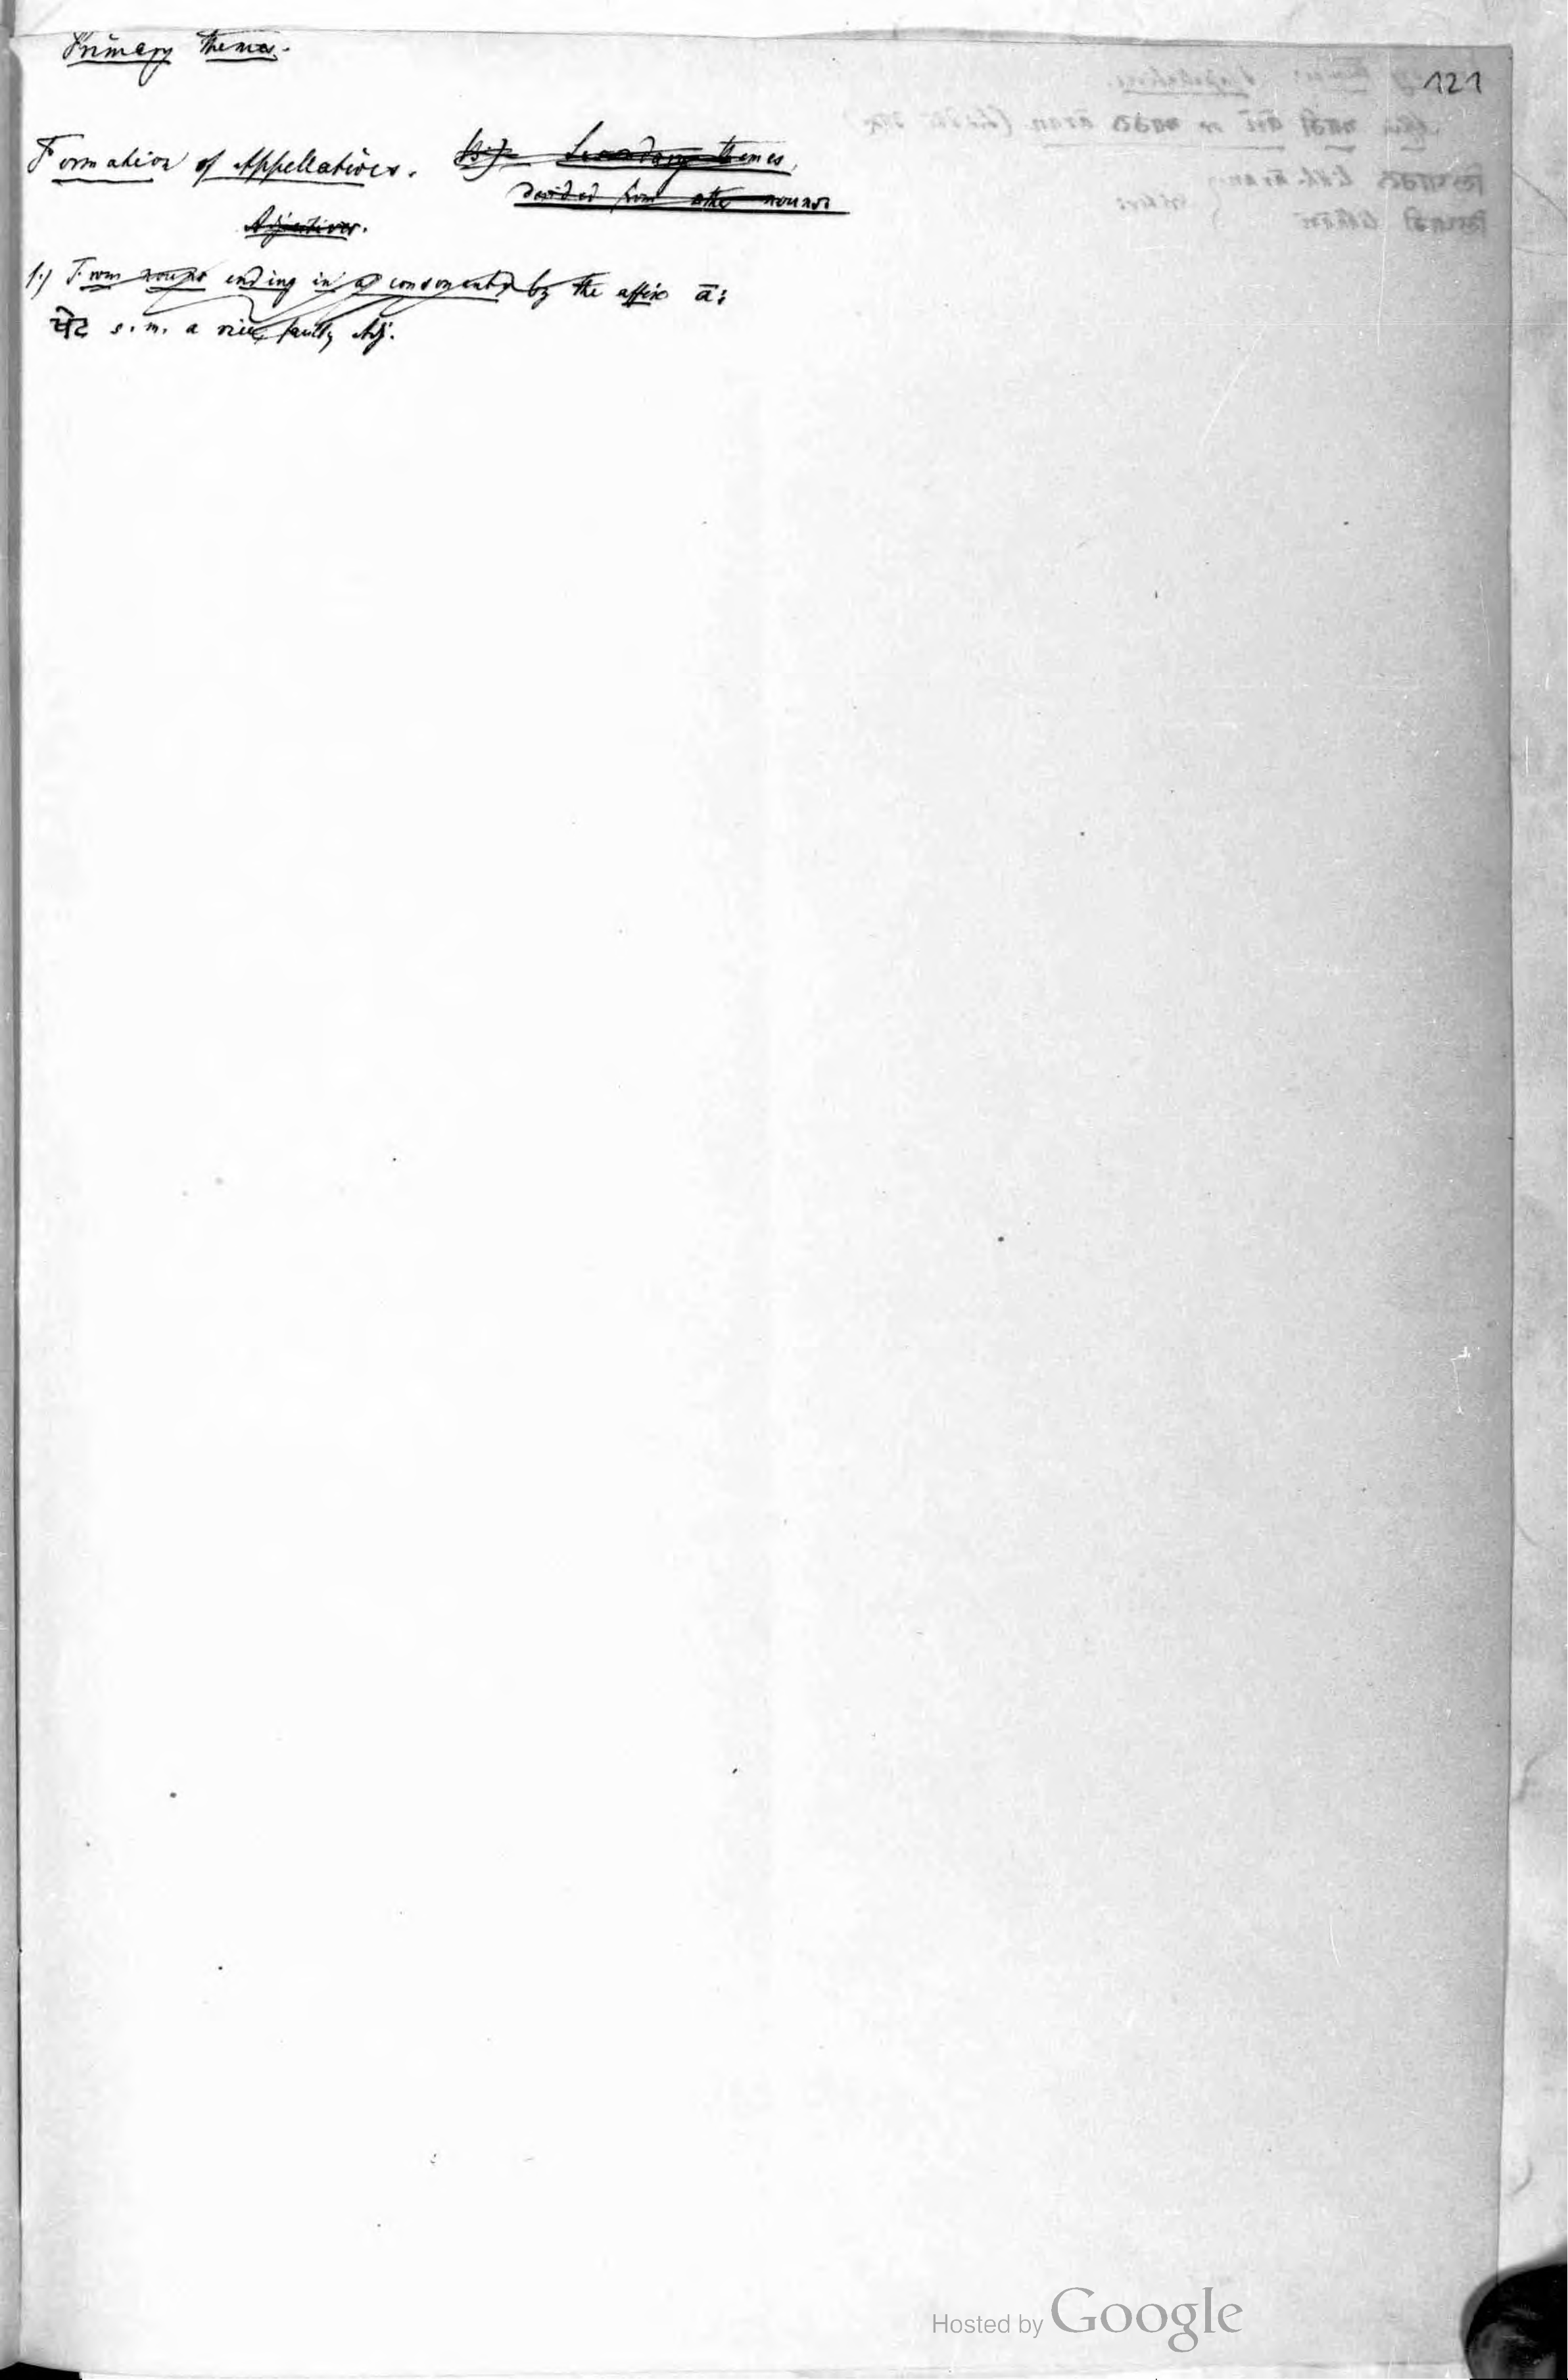 Primary themes.
121
Formation of Appellatives. B.) Secondary themes,
derived from other nouns
Adjectives.
1.) From nouns ending in a consonant by the affix ā:
s. m. a vice, faulty Adj.
Hosted by Google